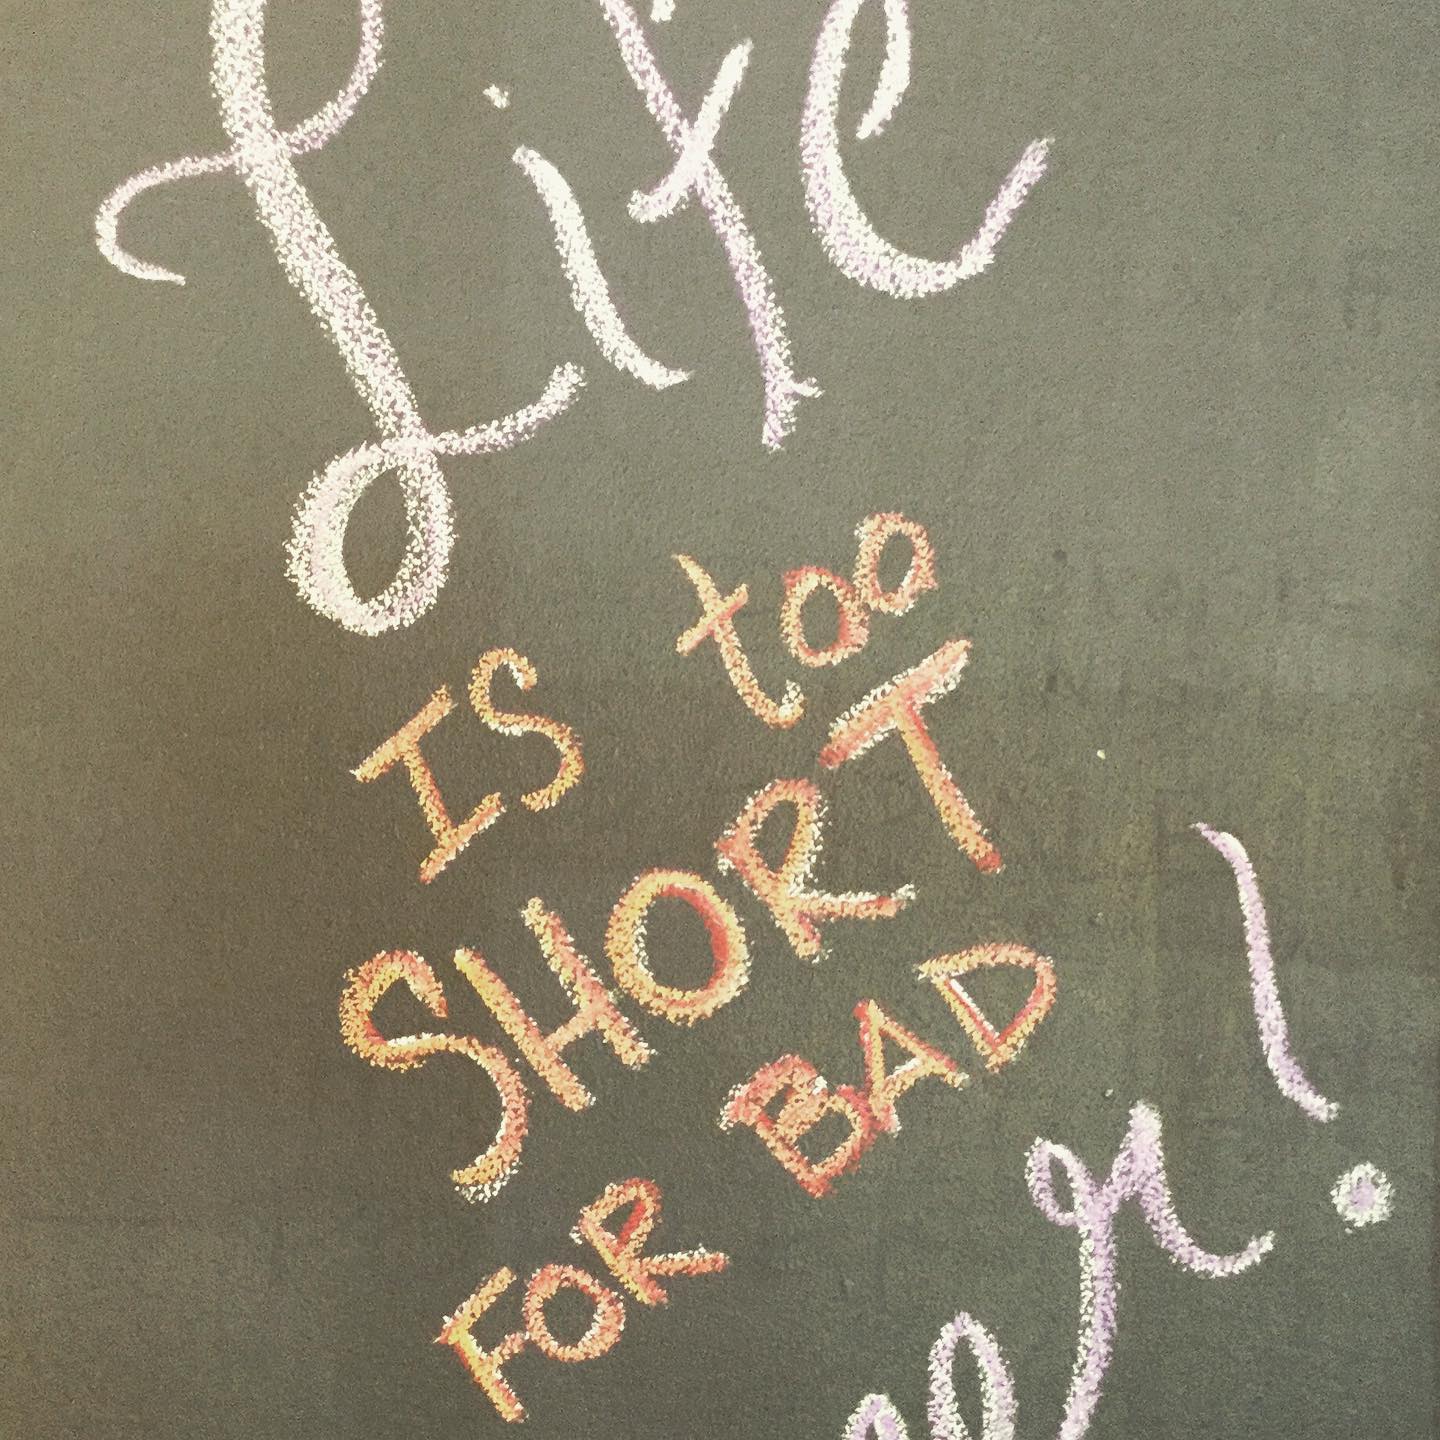 Life
IS too
SHORT
FOR BAD